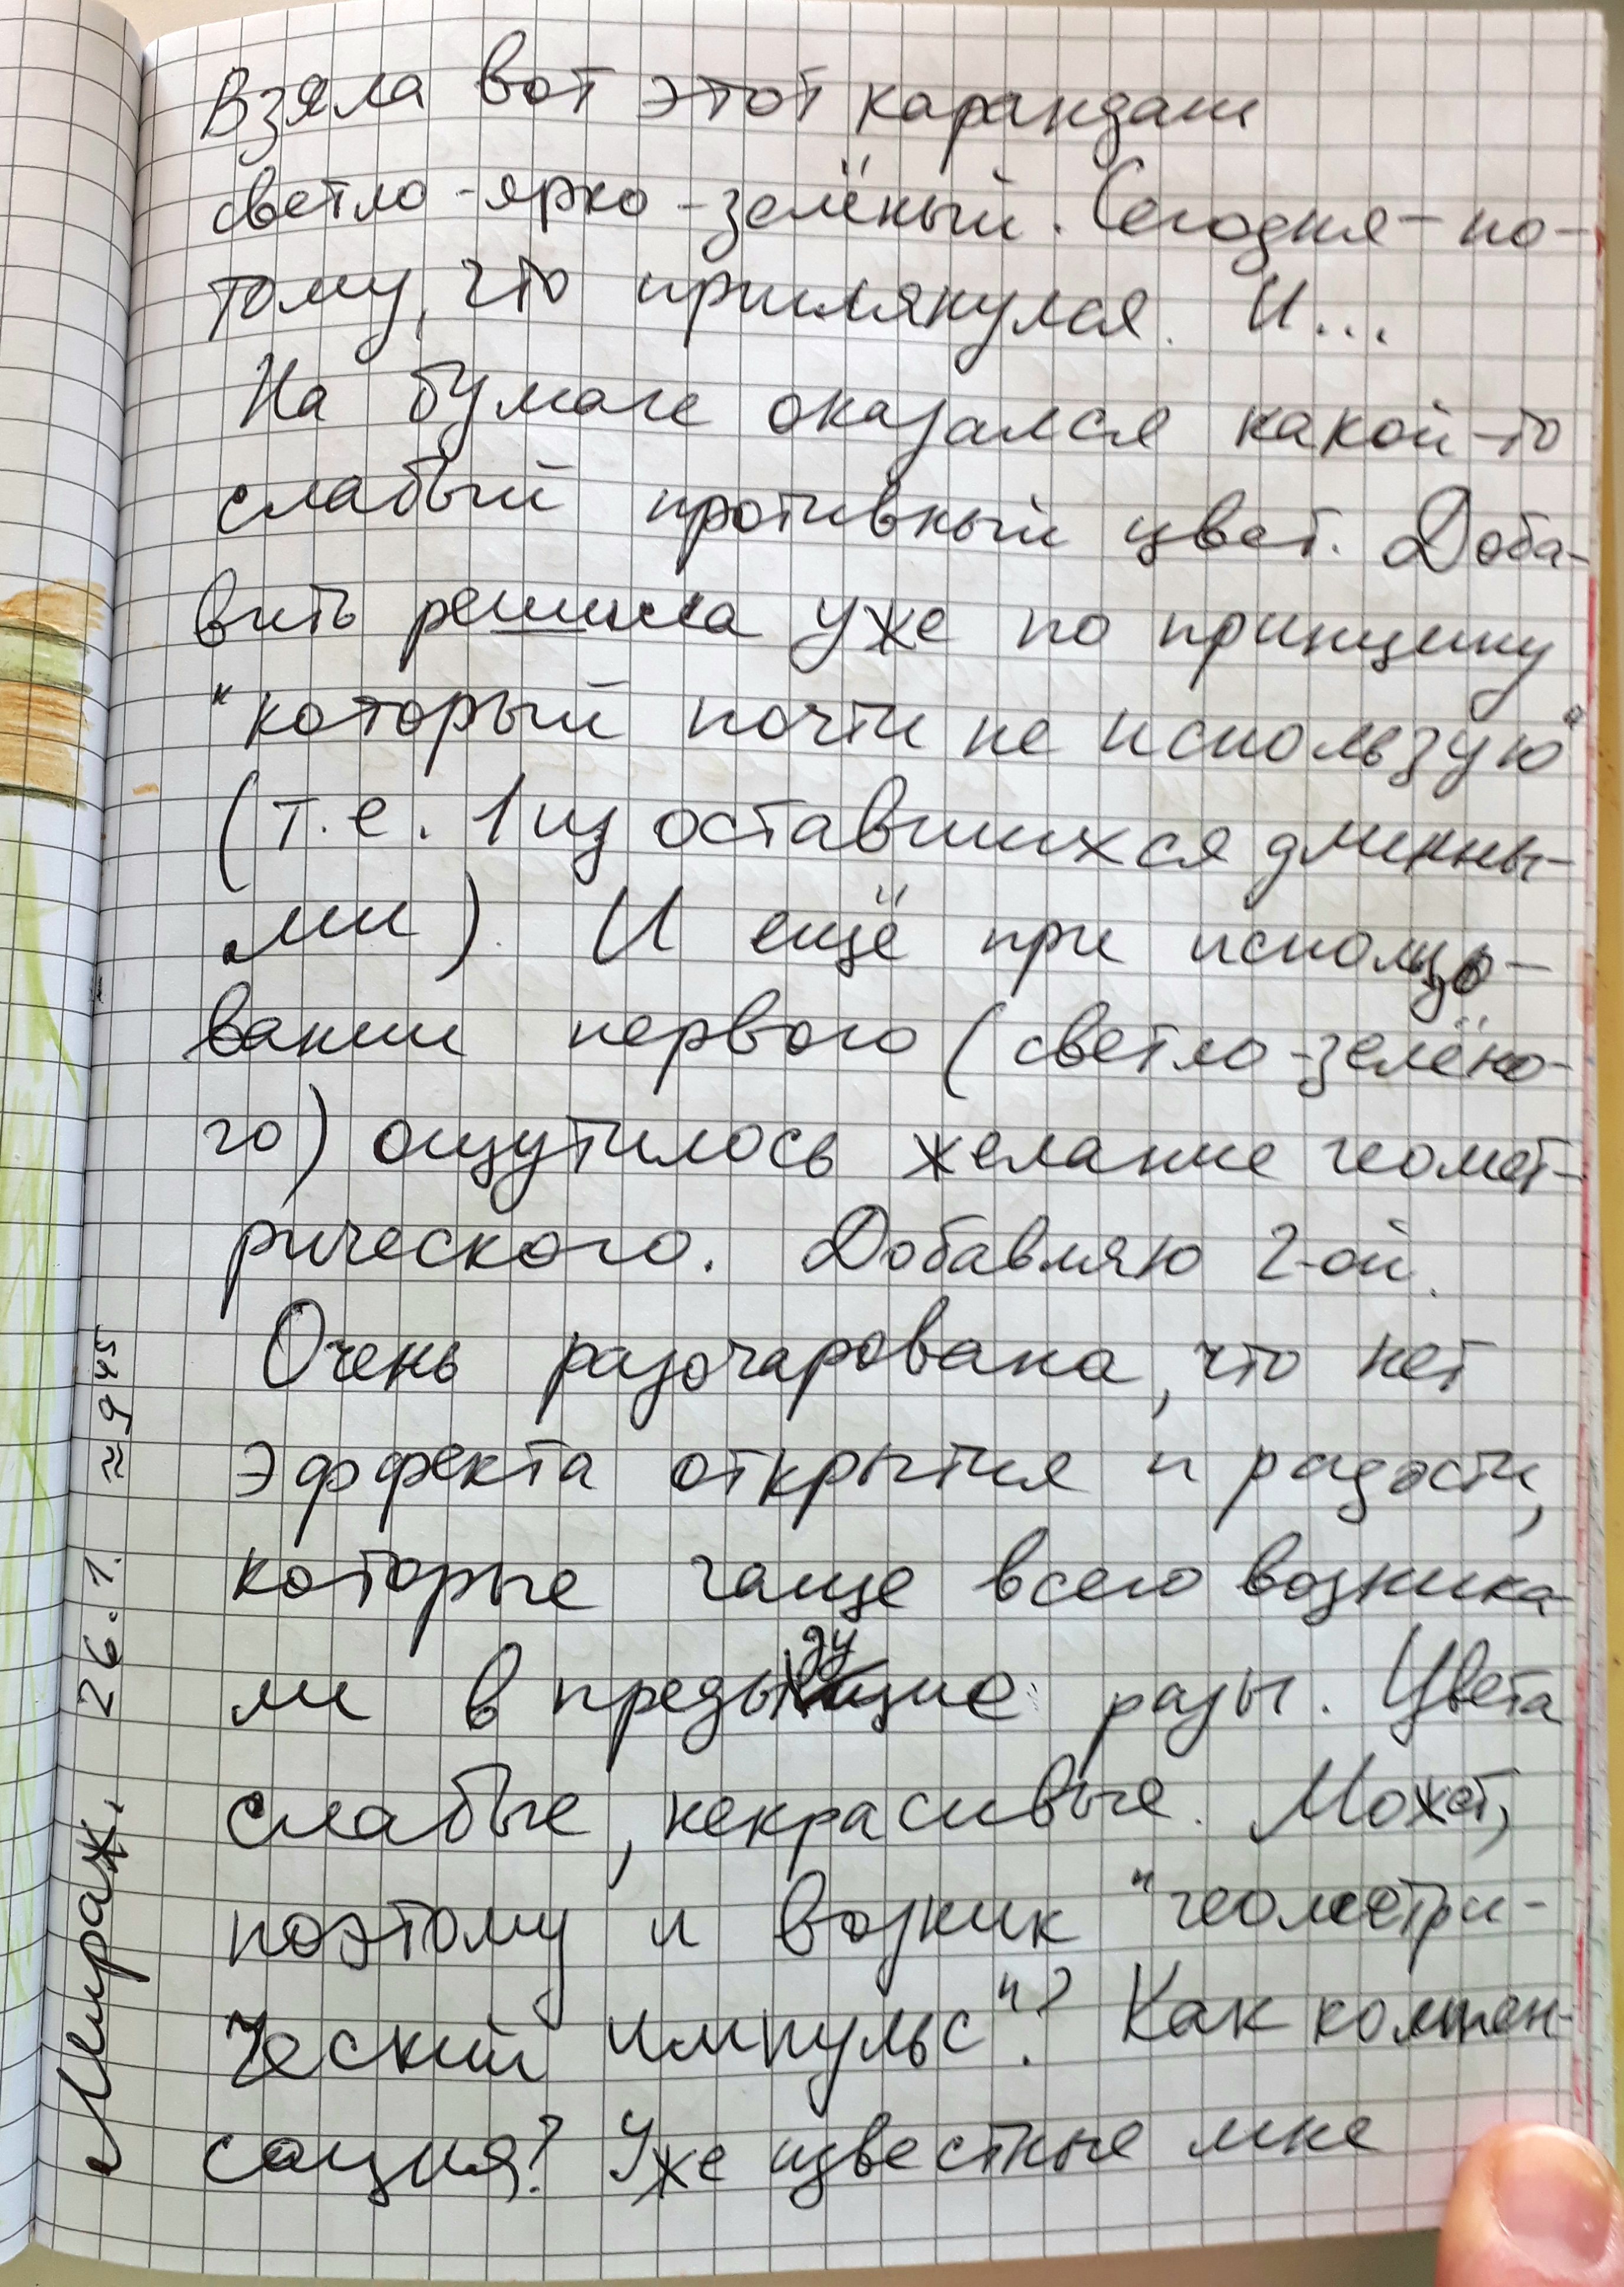 Взяла вот этот карандаш
светло-ярко-зелёный. Сегодня - по-
тому, что приглянулся. И...
На бумаге оказался какой-то
слабый противный цвет. Доба-
вить решила уже по принципу
"который почти не использую"
(т.е. 1 из оставшихся длинны-
ми). И ещё при использо-
вании первого (светло-зелёно-
го) ощутилось желание геомет-
рического. Добавляю 2-ой.
Очень разочарована, что нет
эффекта открытия и радости,
которые чаще всего возника-
ли в предыдущие разы. Цвета
слабые, некрасивые. Может,
поэтому и возник "геометри-
ческий импульс"? Как компен-
сация? Уже известные мне
Мираж. 26.1. ≈ 9 45